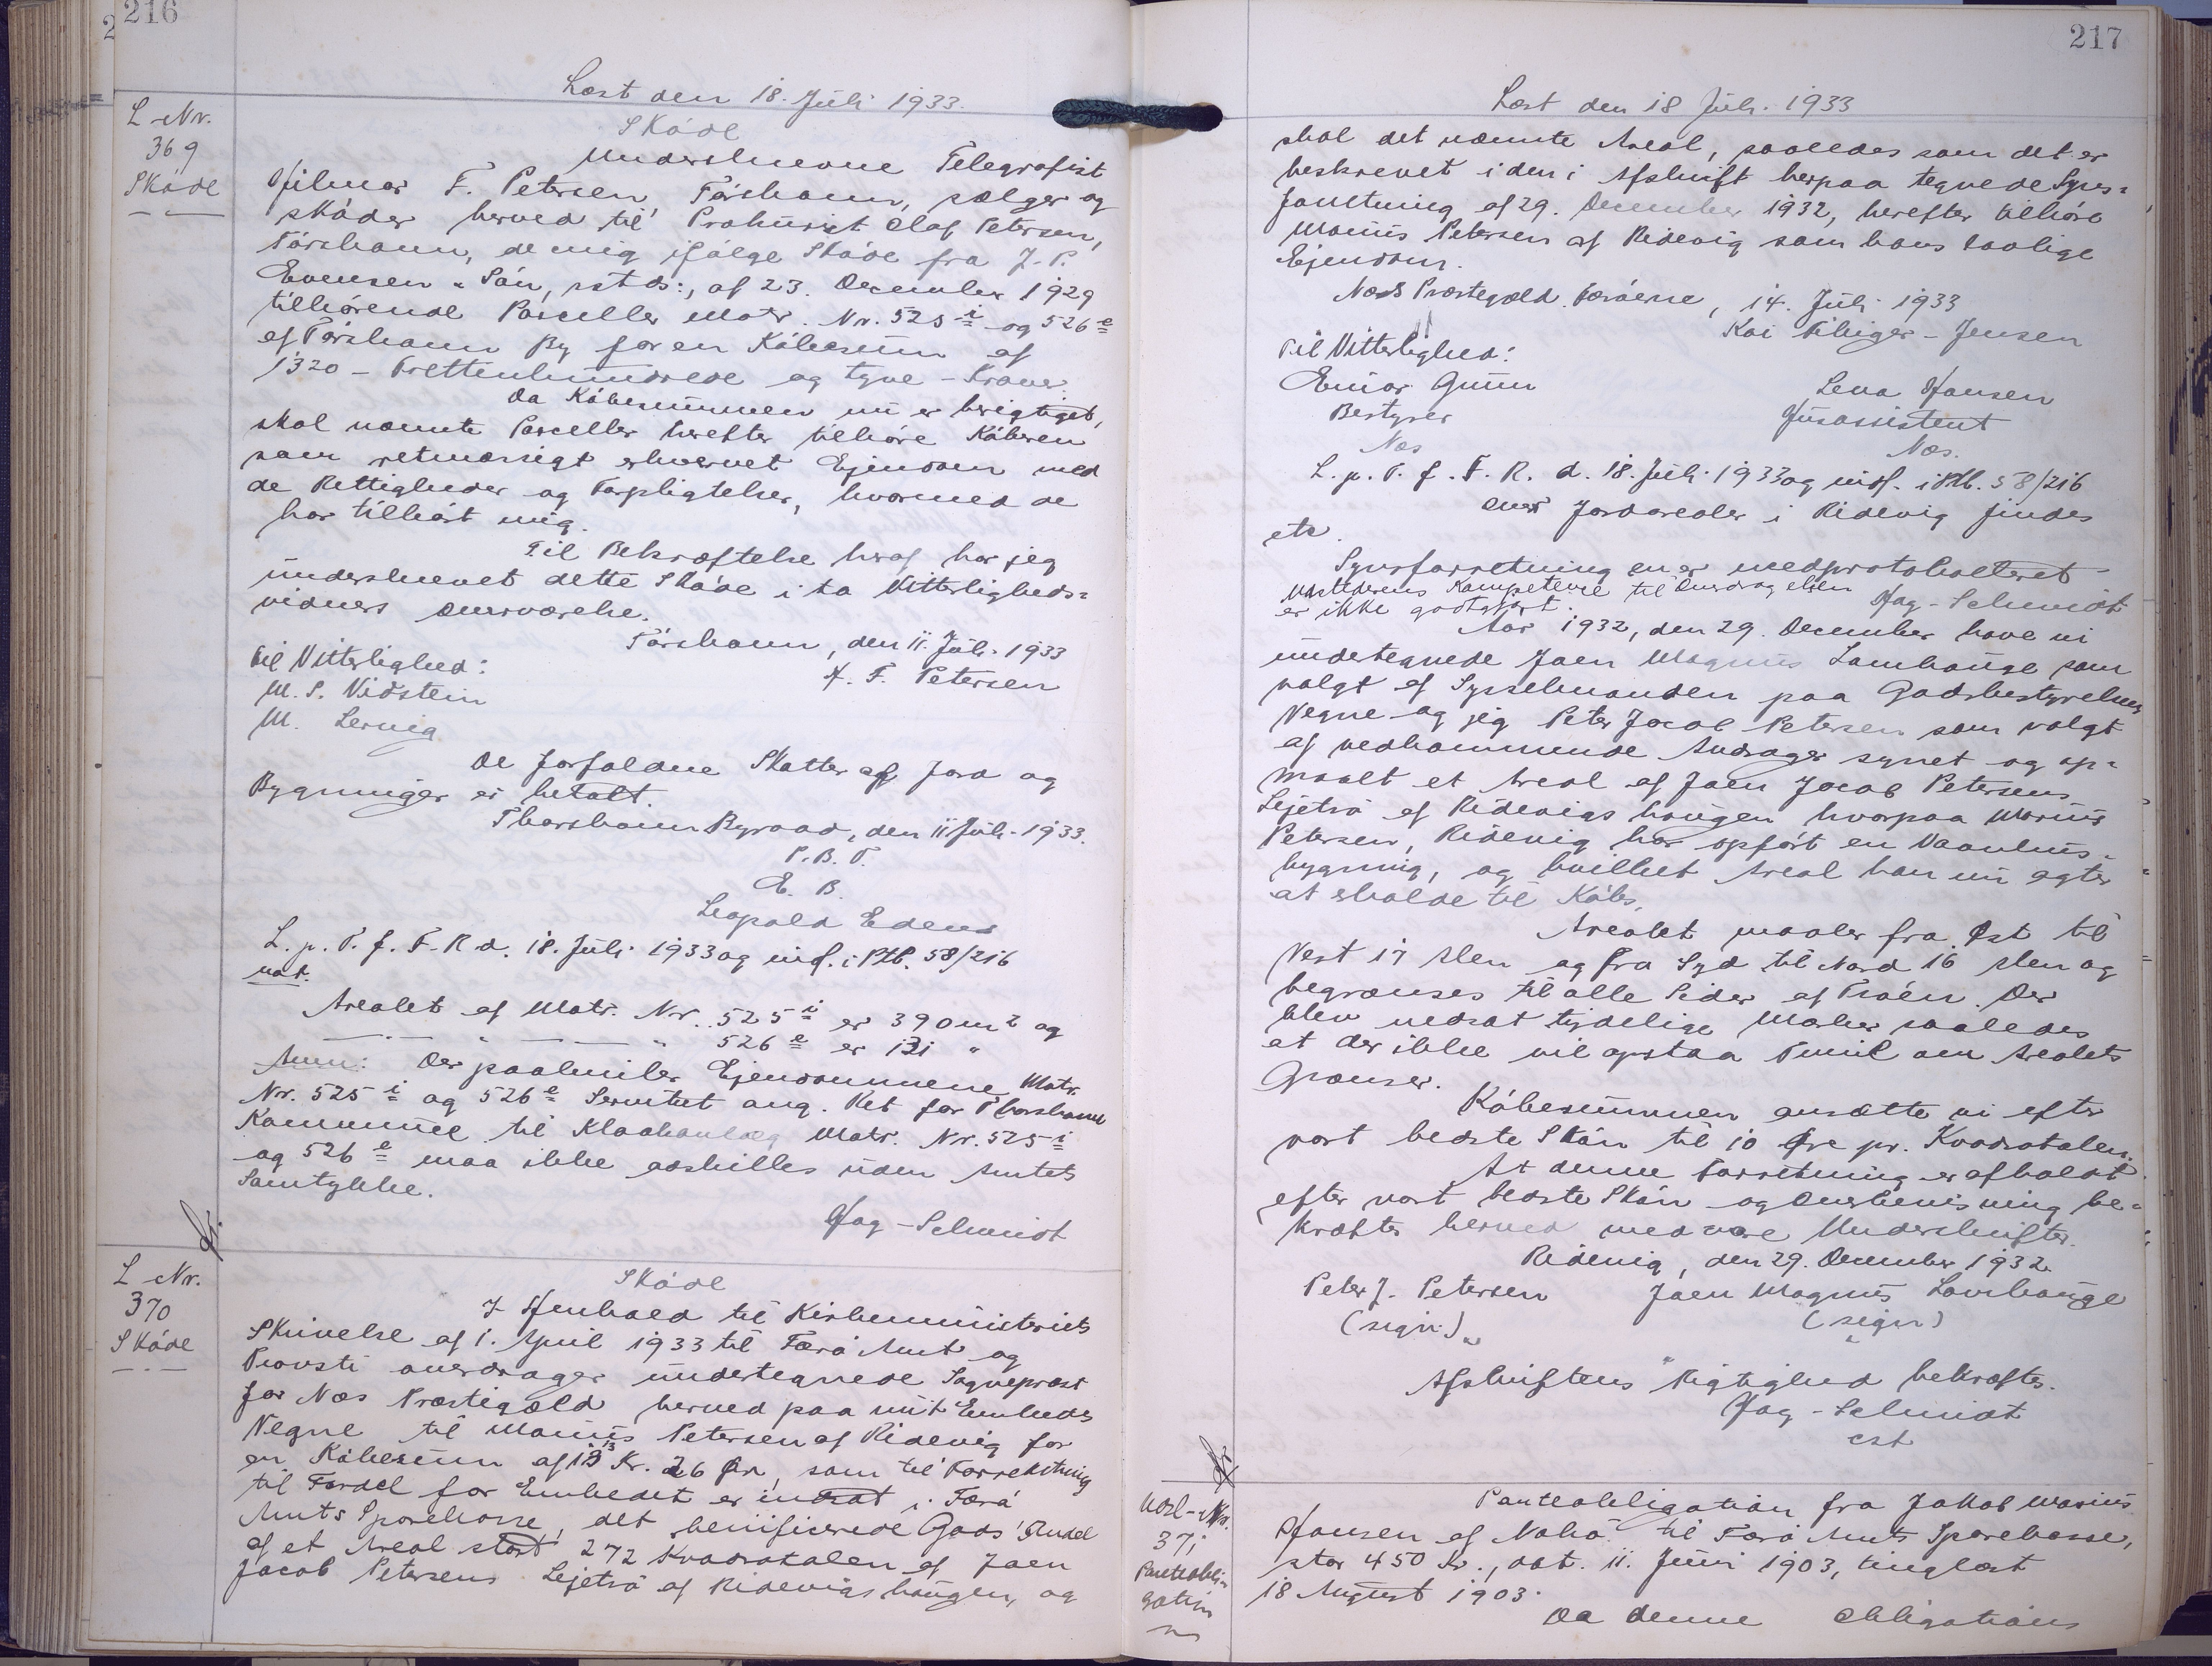 216
Læst den 18. Juli 1933.
L Nr.
369
Skøde
Skøde
Underskrevne Telegrafist
Hilmar F. Petersen, Tórshavn, sælger og
skøder herved til Prokurist Olaf Petersen,
Tórshavn, de mig ifølge Skøde fra J. P.
Evensen & Søn, ssteds:, af 23. December 1929
tilhørende Parceller Matr. Nr. 525 i og 526 e
af Tórshavn By for en Købesum af
1320 - Trettenhundrede og tyve - Kroner.
Da Købesummen nu er berigtiget,
skal nævnte Parceller herefter tilhøre Køberen
som retmæssigt erhvervet Ejendom med
de Rettigheder og Forpligtelser, hvormed de
har tilhørt mig.
Til Bekræftelse heraf har jeg
underskrevet dette Skøde i to Vitterligheds=
vidners Overværelse.
Tórshavn, den 11. Juli 1933
Til Vitterlighed:
H. F. Petersen
M. S. Vidstein
M. Lervig
De forfaldne Skatter af Jord og
Bygninger er betalt.
Thorshavn Byraad, den 11 Juli 1933.
P. B. V.
E. B.
Leopold Edens
L. p. T. f. F. R d. 18. Juli 1933 og indf. i Ptb. 58/216
not.
Arealet af Matr. Nr. 525 i er 390 m2 og
— " — " 526 e er 131 "
Anm: Der paahviler Ejendommene Matr.
Nr. 525 i og 526 e Servitut ang. Ret for Thorshavn
Kommune til Kloakanlæg Matr. Nr. 525 i
og 526 e maa ikke adskilles uden Amtets
Samtykke.
Hag-Schmidt
L Nr.
370
Skøde
Skøde
I Henhold til Kirkeministeriets
Skrivelse af 1. April 1933 til Færø Amt og
Provsti overdrager undertegnede Sognepræst
for Næs Præstegæld herved paa mit Embeds
Vegne til Marius Petersen af Ridevig for
en Købesum af Kr. 26 Øre, som til Forrentning
til Fordel for Embedet er indsat i Færø
Amts Sparekasse, det benificerede Gods' Andel
af et Areal stort 272 Kvadratalen af Joen
Jacob Petersens Lejetrø af Ridevigshaugen, og
217
Læst den 18 Juli 1933
skal det nævnte Areal, saaledes som det er
beskrevet i den i Afskrift herpaa tegnede Syns=
forretning af 29. December 1932, herefter tilhøre
Marius Petersen af Ridevig som hans lovlige
Ejendom.
Næs Præstegæld. Færøerne, 14. Juli 1933
Kai Fibiger-Jensen
Til Vitterlighed:
Einar Gunn
Lena Hansen
Bestyrer
Husassistent
Næs
Næs.
L. p. T. f. F. R. d. 18. Juli 1933 og indf. i Ptb. 58/216
over Jordarealer i Ridevig findes
etc.
Synsforretningen er medprotokolleret
Udstederens Kompetence til Overdragelsen
er ikke godtgjort.
Hag-Schmidt
Aar 1932, den 29. December have vi
undertegnede Joen Magnus Lamhauge som
valgt af Sysselmanden paa Godsbestyrelsens
Vegne og jeg Peter Jacob Petersen som valgt
af vedkommende Andrager synet og op=
maalt et Areal af Joen Jacob Petersens
Lejetrø af Ridevigshaugen hvorpaa Marius
Petersen, Ridevig har opført en Vaanhus=
bygning, og hvilket Areal han nu agter
at erholde til Købs.
Arealet maaler fra Øst til
Vest 17 Alen og fra Syd til Nord 16 Alen og
begrænses til alle Sider af Trøen. Der
blev nedsat tydelige Mærker saaledes
at der ikke vil opstaa Tvivl om Arealets
Grænser.
Købesummen ansætte vi efter
vort bedste Skøn til 10 Øre pr. Kvadratalen.
At denne Forretning er afholdt
efter vort bedste Skøn og Overbevisning be=
kræfter herved med vore Underskrifter.
Ridevig, den 29. December 1932.
Peter J. Petersen Joen Magnus Lamhauge
(sign.) (sign)
Afskriftens Rigtighed bekræftes.
Hag-Schmidt
cst
Udsl-Nr.
371
Panteobli=
gation
Panteobligation fra Jakob Marius
Hansen af Nolsø til Færø Amts Sparekasse,
stor 450 Kr., dat. 11. Juni 1903, tinglæst
18 August 1903.
Da denne Obligations